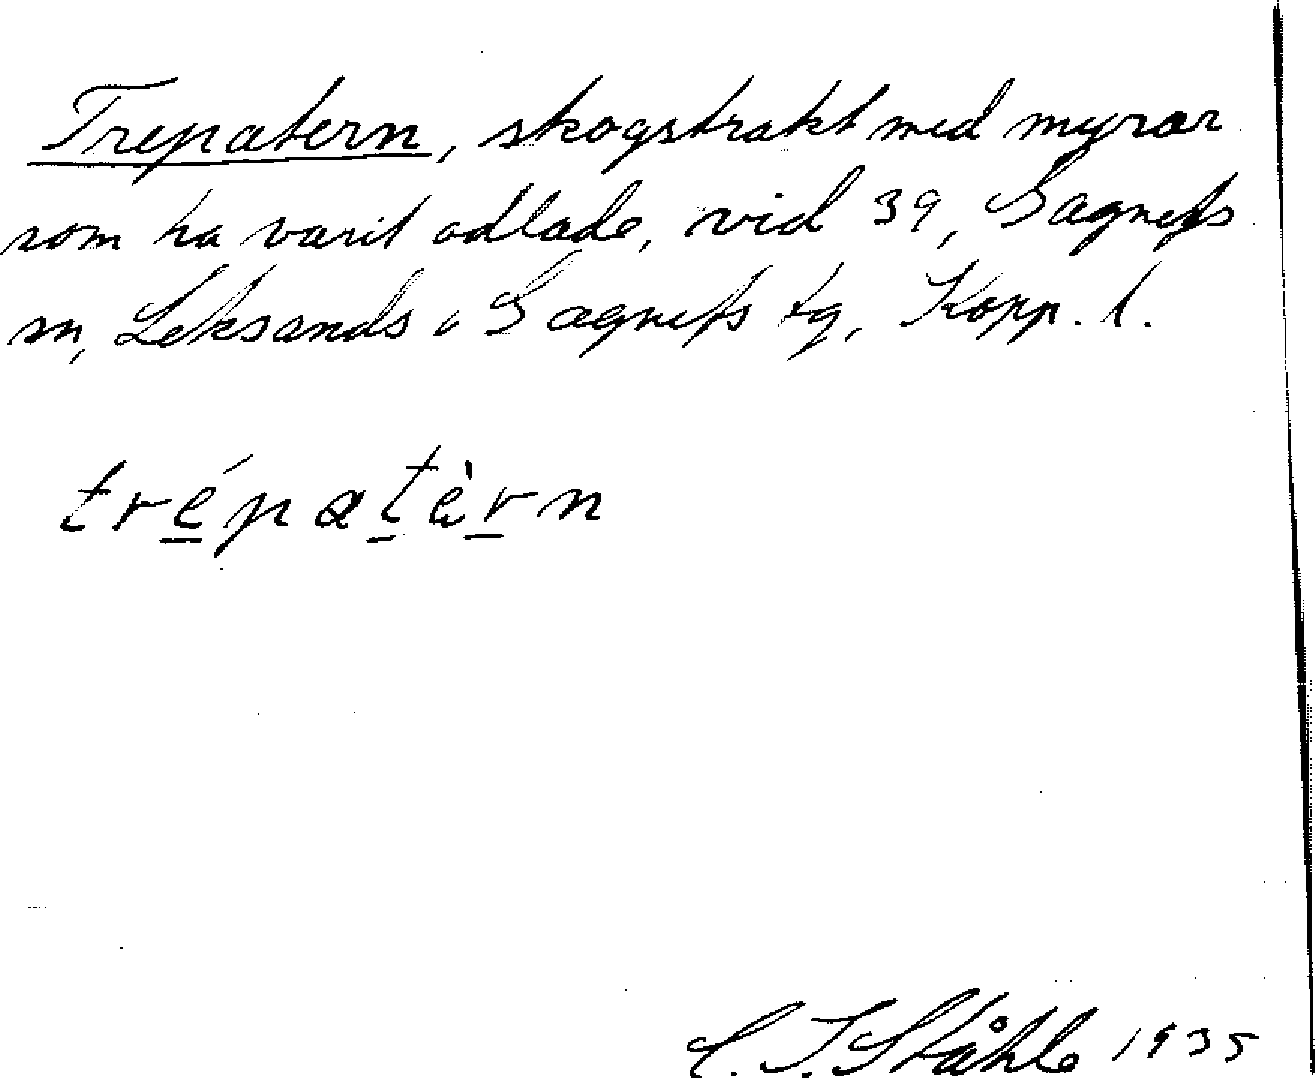 Trepatern, skogstrakt med myrar
som ha varit odlade, vid 39, Gagnefs
sn, Leksands o Gagnefs tg, Kopp. l.
trépatèrn
C. I. Ståhle 1935